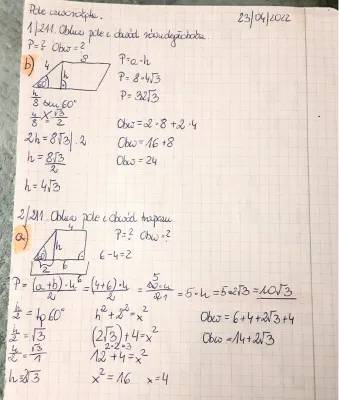 Pole czworokąta. 23/04/2022
1/211. Oblicz pole i obwód równoległoboku
P=? Obw=?
b)
4 8
h
60°
P=a·h
P=8·4√3
P=32√3
h/8 sin60°
h/8 = √3/2
2h=8√3 |:2
h=8√3/2
h=4√3
Obw=2·8+2·4
Obw=16+8
Obw=24
2/211. Oblicz pole i obwód trapezu
a)
4
h
60°
2 6
6-4=2
P=? Obw=?
P=(a+b)·h/2=(4+6)·h/2=5·h=5·2√3=10√3
h/2=tg60°
h/2=√3
h/2=√3/1
h=2√3
h²+2²=x²
(2√3)+4=x²
12+4=x²
x²=16 x=4
Obw=6+4+2√3+4
Obw=14+2√3